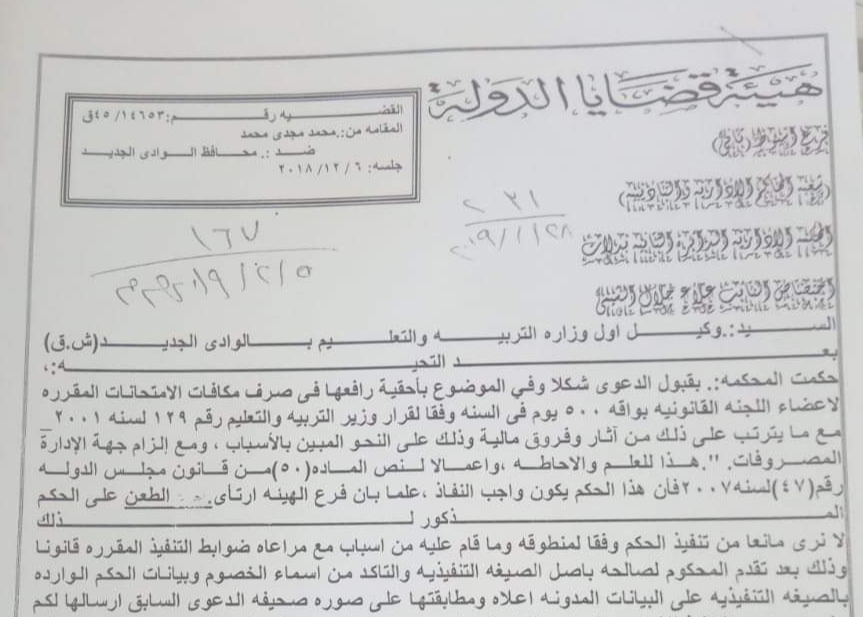 هيئة قضايا الدولة
فرع اسيوط (ثاني)
(شعبة المحاكم الادارية والتأديبية)
المحكمة الادارية الدائرة الثانية بدلات
اختصاص النائب علاء جلال
القضيه رقم:١٤٦٥٣/٤٥ق
المقامه من:.محمد مجدى محمد
ضد :. محافظ الوادى الجديد
جلسه: ٢٠١٨/١٢/٦
٢٣١
٢٠١٩/١/٢٨
١٦٧
٢٠١٩/٢/٥
السيد:.وكيل اول وزاره التربيه والتعليم بالوادى الجديد(ش.ق)
بعد التحيه:،
حكمت المحكمه:. بقبول الدعوى شكلا وفي الموضوع بأحقية رافعها فى صرف مكافات الامتحانات المقرره
لاعضاء اللجنه القانونيه بواقه ٥٠٠ يوم فى السنه وفقا لقرار وزير التربيه والتعليم رقم ١٢٩ لسنه ٢٠٠١
مع ما يترتب على ذلك من آثار وفروق مالية وذلك على النحو المبين بالأسباب ، ومع إلزام جهة الإدارة
المصروفات. ".هذا للعلم والاحاطه ،واعمالا لنص الماده(٥٠)من قانون مجلس الدوله
رقم(٤٧)لسنه٢٠٠٧فأن هذا الحكم يكون واجب النفاذ ،علما بان فرع الهيئه ارتأى الطعن على الحكم
المذكور لذلك
لا نرى مانعا من تنفيذ الحكم وفقا لمنطوقه وما قام عليه من اسباب مع مراعاه ضوابط التنفيذ المقرره قانونا
وذلك بعد تقدم المحكوم لصالحه باصل الصيغه التنفيذيه والتاكد من اسماء الخصوم وبيانات الحكم الوارده
بالصيغه التنفيذيه على البيانات المدونه اعلاه ومطابقتها على صوره صحيفه الدعوى السابق ارسالها لكم